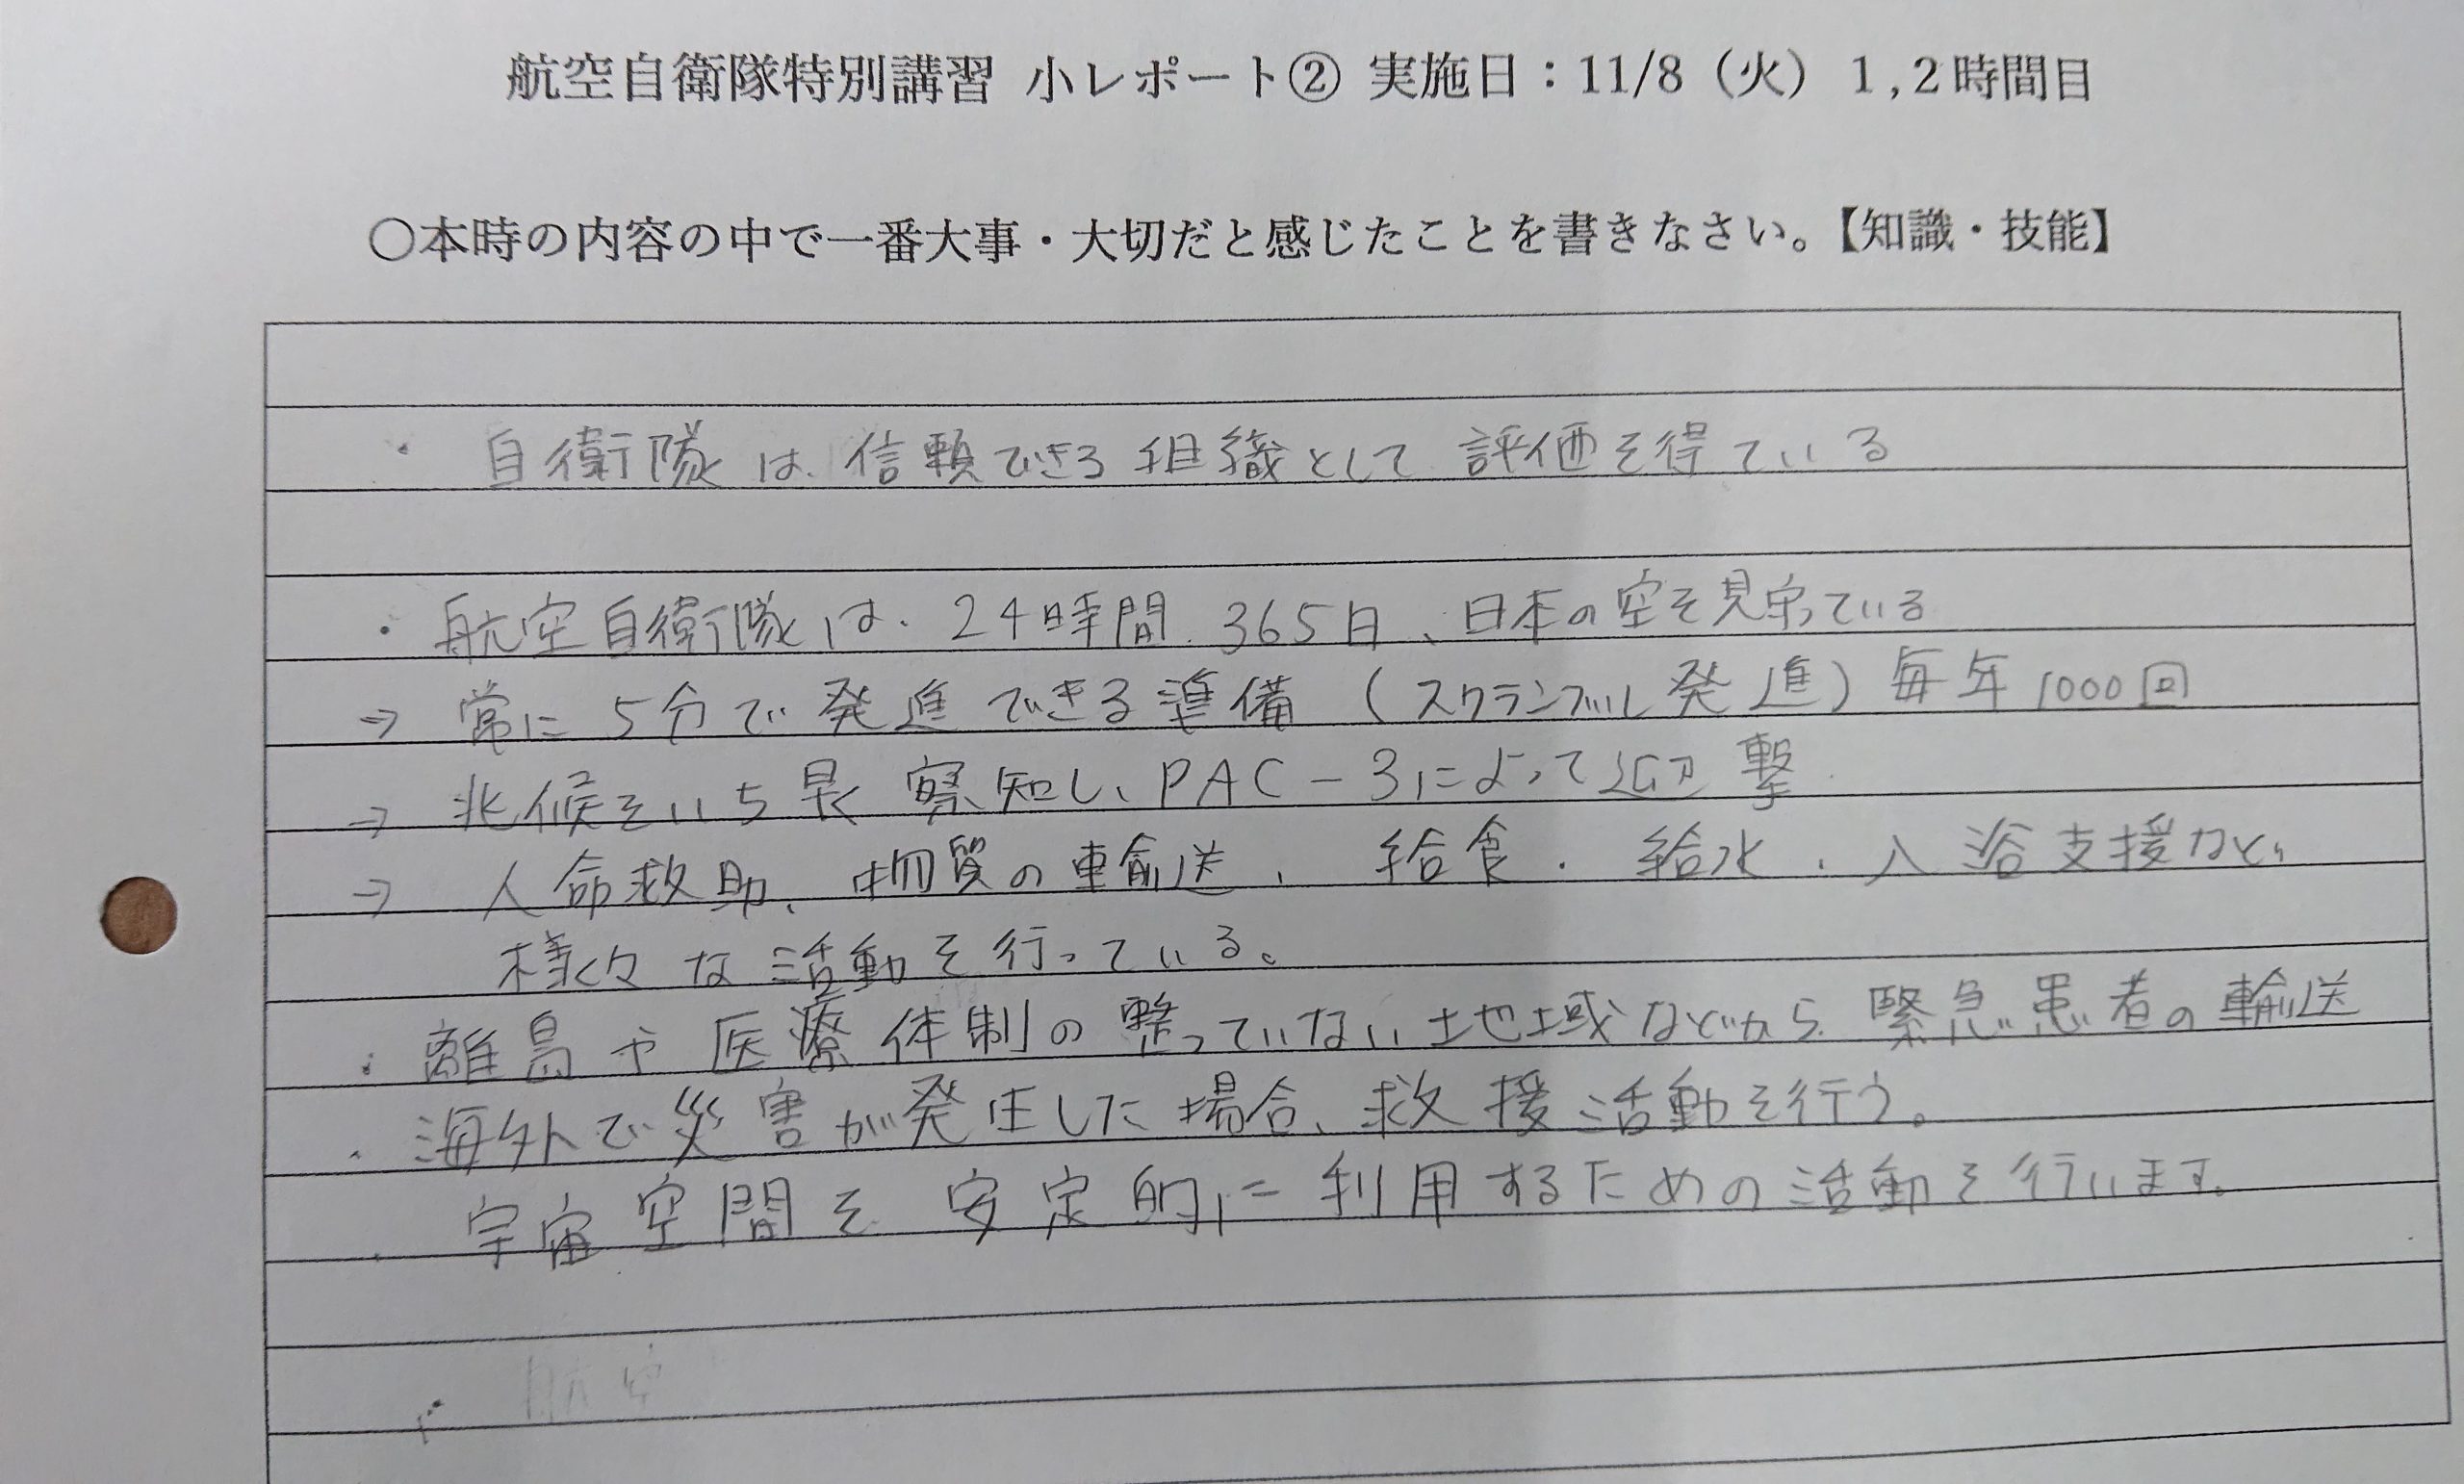 航空自衛隊特別講習 小レポート② 実施日：11/8（火）1,2時間目
○本時の内容の中で一番大事・大切だと感じたことを書きなさい。【知識・技能】
・自衛隊は、信頼できる組織として評価を得ている
・航空自衛隊は、24時間、365日、日本の空を見守っている
⇒ 常に5分で発進できる準備（スクランブル発進）毎年1000回
→ 兆候をいち早く察知し、PAC-3によって迎撃
→ 人命救助、物質の輸送、給食・給水・入浴支援など、
様々な活動を行っている。
・離島や医療体制の整っていない地域などから緊急患者の輸送
・海外で災害が発生した場合、救援活動を行う。
・宇宙空間を安定的に利用するための活動を行います。
航空